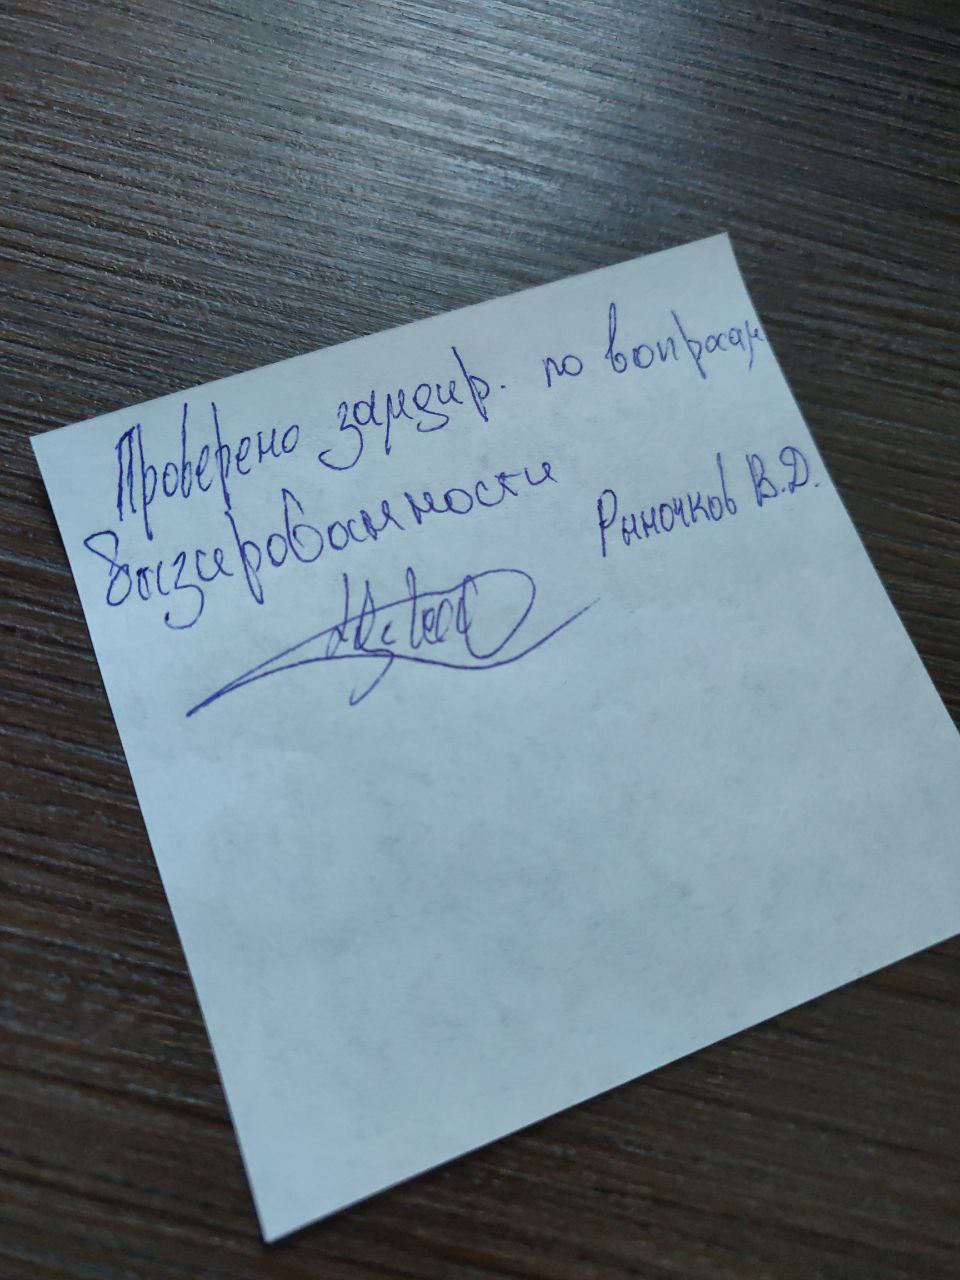 Проверено замдир. по вопросам
Вызированности
Рыночков В.Д.